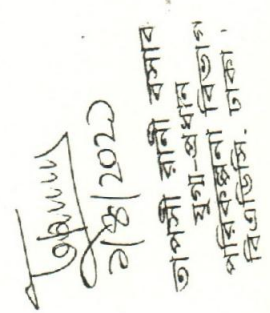 তাপসী রানী বসাক
যুগ্ম-প্রধান
পরিকল্পনা বিভাগ
বিএডিসি, ঢাকা।